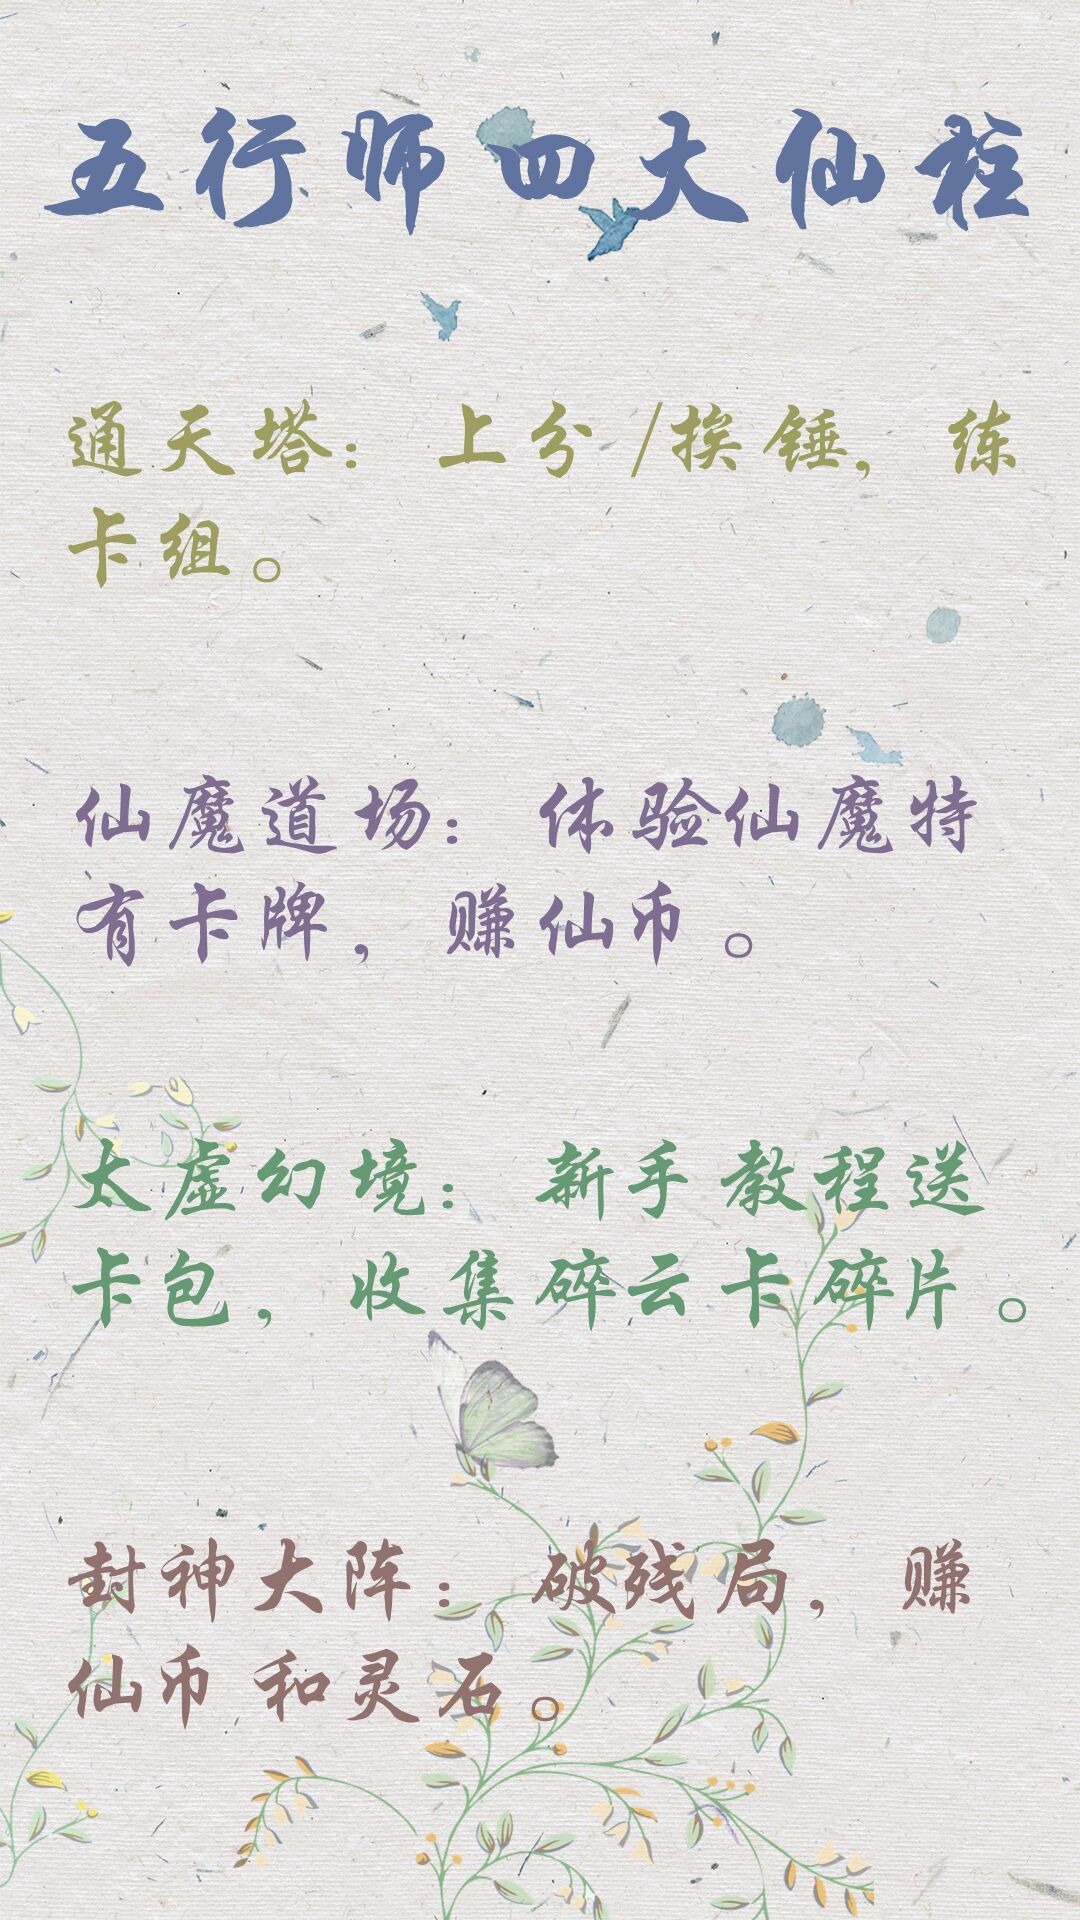 五行师四大仙柱
通天塔：上分/挨锤，练
卡组。
仙魔道场：体验仙魔特
有卡牌，赚仙币。
太虚幻境：新手教程送
卡包，收集碎云卡碎片。
封神大阵：破残局，赚
仙币和灵石。